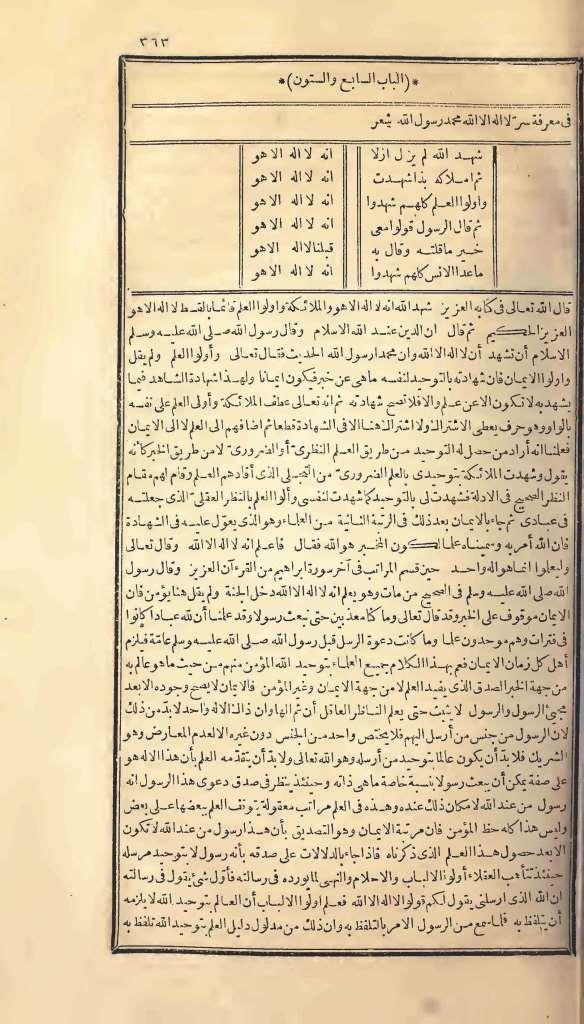 ٣٦٣
*(الباب السابع والستون)*
فى معرفة سر لا اله الا الله محمد رسول الله شعر
شهد الله لم يزل ازلا انه لا اله الا هو
ثم املاكه بذا شهدت انه لا اله الا هو
واولوا العلم كلهم شهدوا انه لا اله الا هو
ثم قال الرسول قولوا معى انه لا اله الا هو
خير ما قلته وقال به قبلنا لا اله الا هو
ما عدا الانس كلهم شهدوا انه لا اله الا هو
قال الله تعالى فى كتابه العزيز شهد الله انه لا اله الا هو والملائكة واولوا العلم قائما بالقسط لا اله الا هو
العزيز الحكيم ثم قال ان الدين عند الله الاسلام وقال رسول الله صلى الله عليه وسلم
الاسلام أن تشهد أن لا اله الا الله وان محمدا رسول الله الحديث فقال تعالى وأولوا العلم ولم يقل
واولوا الايمان فان شهادته بالتوحيد لنفسه ما هى عن خبر فيكون ايمانا ولهذا شهادة الشاهد فيما
يشهد به لا تكون الا عن علم والا فلا تصح شهادته ثم انه تعالى عطف الملائكة وأولى العلم على نفسه
بالواو وهو حرف يعطى الاشتراك ولا اشتراك هنا الا فى الشهادة قطعا ثم اضافهم الى العلم لا الى الايمان
فعلمنا انه أراد من حصل له التوحيد من طريق العلم النظرى أو الضرورى لا من طريق الخبر كأنه
يقول وشهدت الملائكة بتوحيدى بالعلم الضرورى من التجلى الذى أفادهم العلم وقام لهم مقام
النظر الصحيح فى الادلة فشهدت لى بالتوحيد كما شهدت لنفسى وأولوا العلم بالنظر العقلى الذى جعلته
فى عبادى ثم جاء بالايمان بعد ذلك فى الرتبة الثانية من العلماء وهو الذى يعوّل عليه فى الشهادة
فان الله أمر به وسميناه علما لكون المخبر هو الله فقال فاعلم انه لا اله الا الله وقال تعالى
وليعلموا انما هو اله واحد حين قسم المراتب فى آخر سورة ابراهيم من القرءآن العزيز وقال رسول
الله صلى الله عليه وسلم فى الصحيح من مات وهو يعلم انه لا اله الا الله دخل الجنة ولم يقل هنا يؤمن فان
الايمان موقوف على الخبر وقد قال تعالى وما كنا معذبين حتى نبعث رسولا وقد علمنا أن لله عبادا كانوا
فى فترات وهم موحدون علما وما كانت دعوة الرسل قبل رسول الله صلى الله عليه وسلم عامّة فيلزم
أهل كل زمان الايمان فعم بهذا الكلام جميع العلماء بتوحيد الله المؤمن منهم من حيث ما هو عالم به
من جهة الخبر الصدق الذى يفيد العلم لا من جهة الايمان وغير المؤمن فالايمان لا يصح وجوده الا بعد
مجىء الرسول والرسول لا يثبت حتى يعلم الناظر العاقل أن ثم الها وان ذلك الاله واحد لا بدّ من ذلك
لان الرسول من جنس من أرسل اليهم فلا يختص واحد من الجنس دون غيره الا لعدم المعارض وهو
الشريك فلا بدّ أن يكون عالما بتوحيد من أرسله وهو الله تعالى ولا بدّ أن يتقدّمه العلم بأن هذا الاله هو
على صفة يمكن أن يبعث رسولا بنسبة خاصة ما هى ذاته وحينئذ ينظر فى صدق دعوى هذا الرسول انه
رسول من عند الله لامكان ذلك عنده وهذه فى العلم مراتب معقولة يتوقف العلم ببعضها على بعض
وليس هذا كله حظ المؤمن فان مرتبة الايمان وهو التصديق بأن هذا رسول من عند الله لا تكون
الا بعد حصول هذا العلم الذى ذكرناه فاذا جاء بالدلالات على صدقه بأنه رسول لا بتوحيد مرسله
حينئذ تتأهب العقلاء أولوا الالباب والاحلام والنهى لما يورده فى رسالته فأوّل شئ يقول فى رسالته
ان الله الذى ارسلنى يقول لكم قولوا لا اله الا الله فعلم اولوا الالباب أن العالم بتوحيد الله لا يلزمه
أن يتلفظ به فلما سمع من الرسول الامر بالتلفظ به وان ذلك من مدلول دليل العلم بتوحيد الله تلفظ به